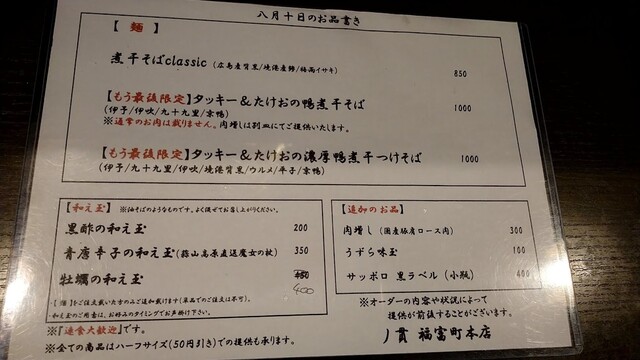 八月十日のお品書き
【 麺 】
煮干そばclassic (広島産背黒/焼港産鯵/梅雨イサキ)
850
【もう最後限定】タッキー&たけおの鴨煮干そば
1000
(伊予/伊吹/九十九里/京鴨)
※通常のお肉は載りません。肉増しは別皿にてご提供いたします。
【もう最後限定】タッキー&たけおの濃厚鴨煮干つけそば
1000
(伊予/九十九里/伊吹/焼港背黒/ウルメ/平子/京鴨)
【和え玉】 ※油そばのようなものです。よく混ぜてお召し上がりください。
黒酢の和え玉 200
青唐辛子の和え玉(蒜山高原直送魔女の杖) 350
牡蠣の和え玉 450
400
・【麺】をご注文頂いた方のみご追加頂けます(単品でのご注文は不可)。
・和え玉のご用意は、お好みのタイミングでお声掛け下さい。
【追加のお品】
肉増し (国産豚肩ロース肉) 300
うずら味玉 100
サッポロ 黒ラベル (小瓶) 400
※『速食大歓迎』です。
※全ての商品はハーフサイズ(50円引き)での提供も承ります。
※オーダーの内容や状況によって
提供が前後することがございます。
丿貫 福富町本店